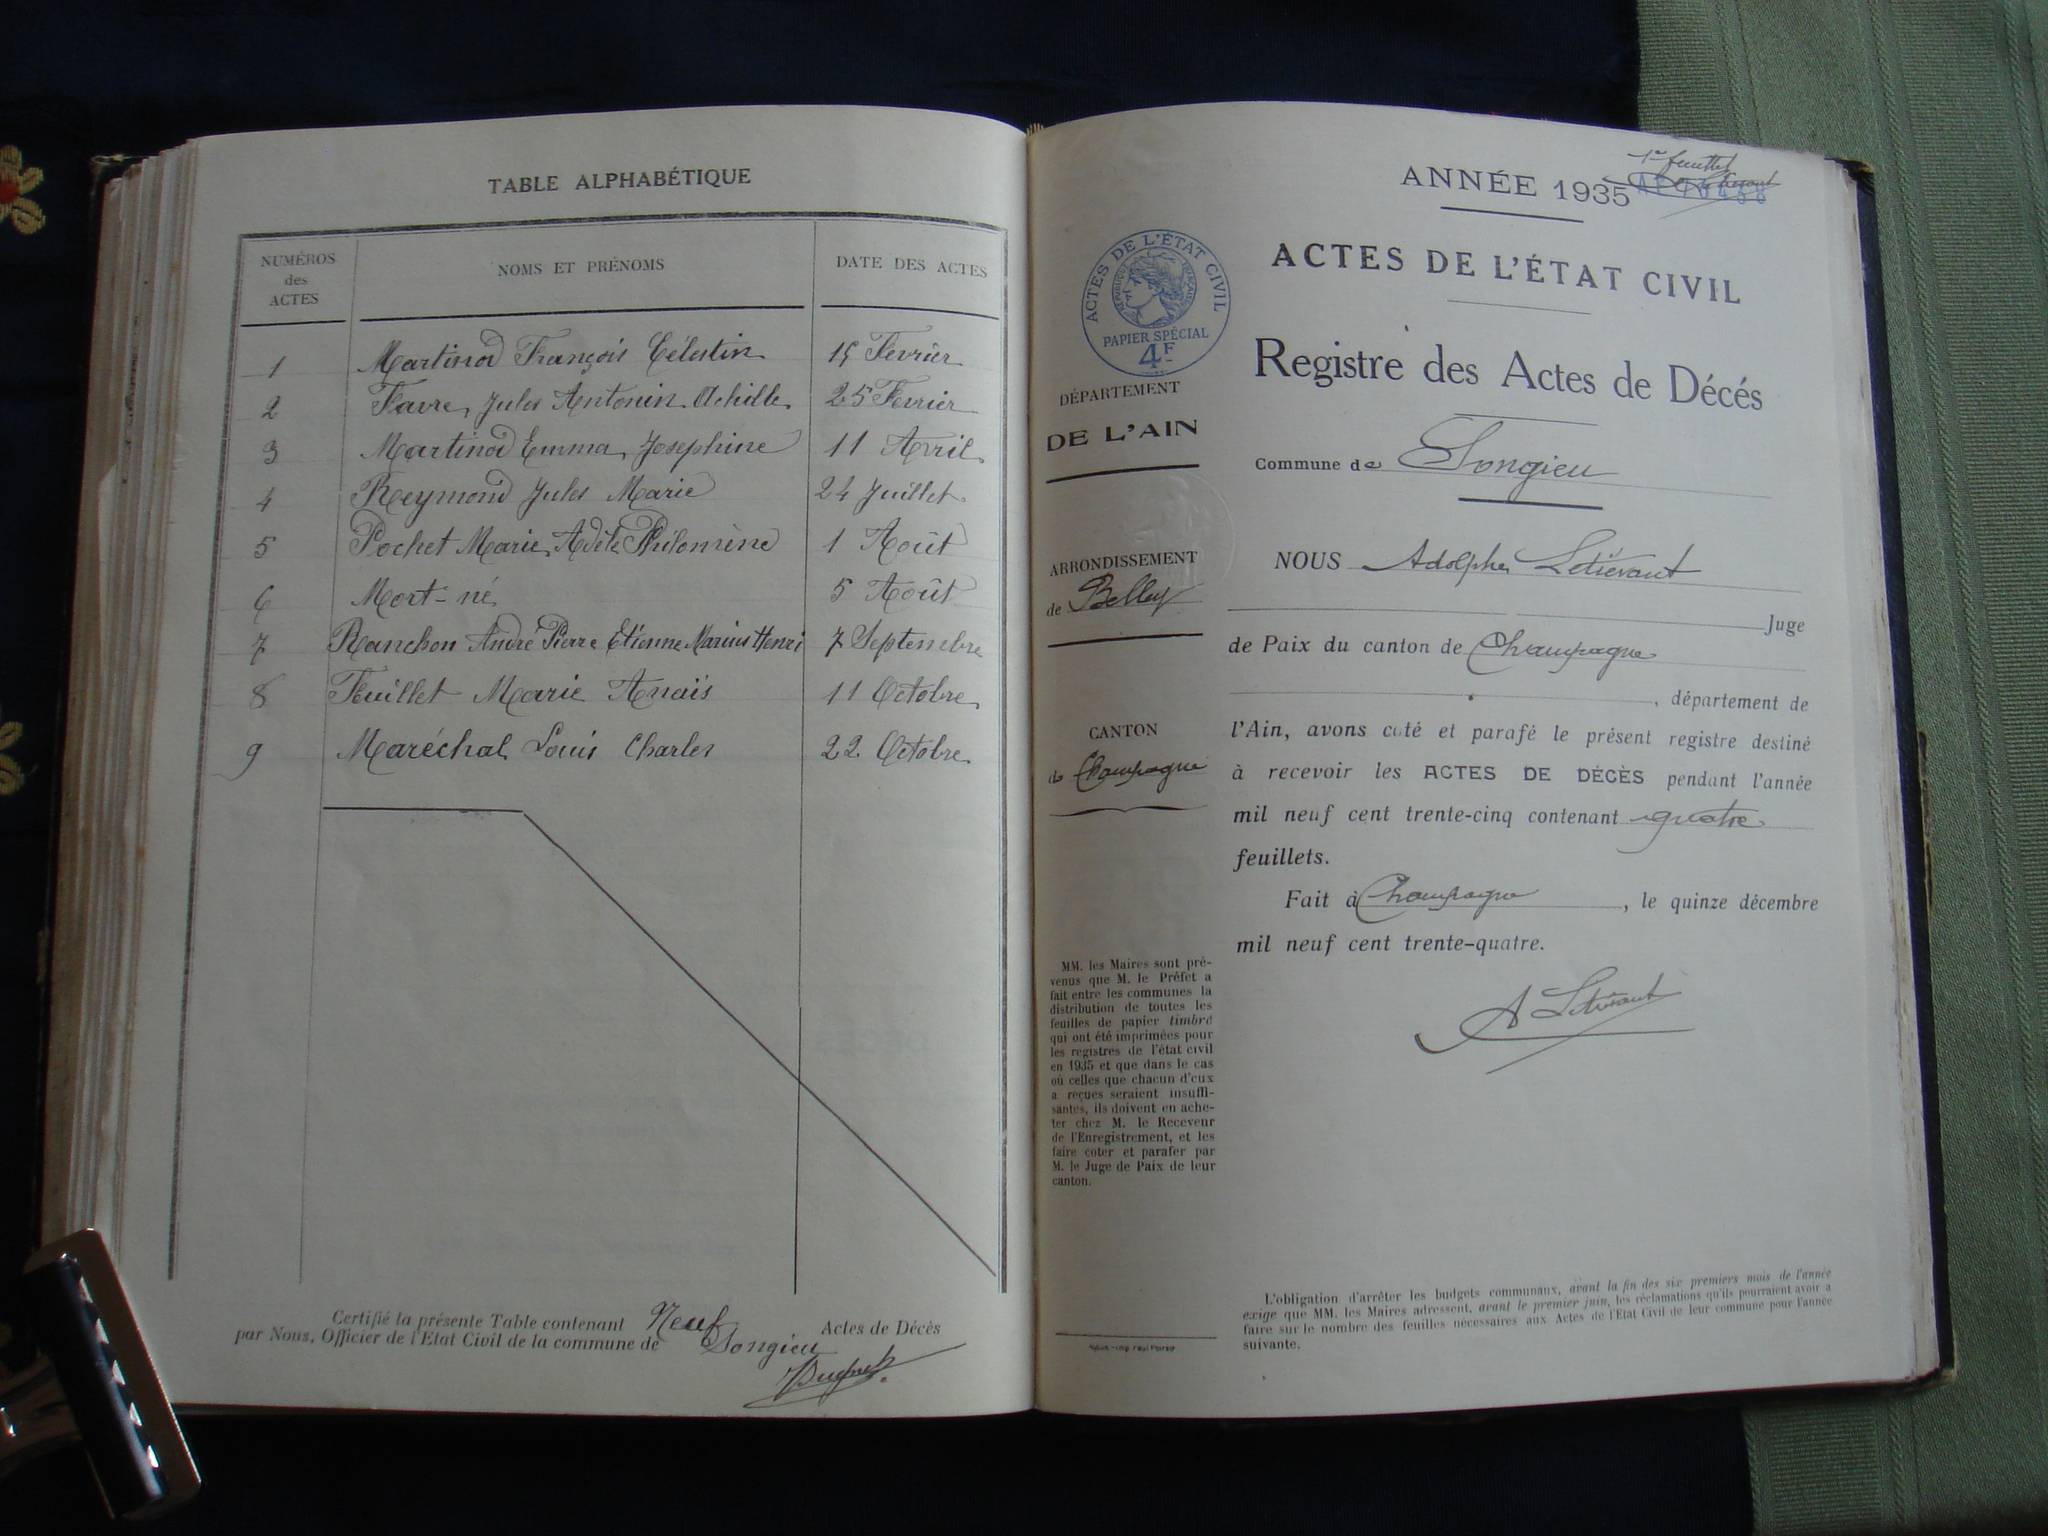 TABLE ALPHABÉTIQUE
NUMÉROS des ACTES NOMS ET PRÉNOMS DATE DES ACTES
1 Martinod François Célestin 15 Fevrier
2 Favre, Jules Antonin Achille 25 Fevrier
3 Martinod Emma, Josephine 11 Avril
4 Reymond Jules Marie 24 Juillet
5 Pochet Marie, Adèle Philomène 1 Août
6 Mort-né 5 Août
7 Ranchon André Pierre Etienne Marius Henri 7 Septembre
8 Feuillet Marie Anaïs 11 Octobre
9 Maréchal Louis Charles 22 Octobre
Certifié la présente Table contenant Neuf Actes de Décès
par Nous, Officier de l'Etat Civil de la commune de Songieu
1er feuillet
ANNÉE 1935
ACTES DE L'ÉTAT CIVIL
PAPIER SPÉCIAL
4F
RÉPUBLIQUE FRANÇAISE
ACTES DE L'ÉTAT CIVIL
Registre des Actes de Décés
Commune de Songieu
DÉPARTEMENT
DE L'AIN
ARRONDISSEMENT
de Belley
CANTON
de Champagne
NOUS Adolphe Letiévant
Juge
de Paix du canton de Champagne
, département de
l'Ain, avons coté et parafé le présent registre destiné
à recevoir les ACTES DE DÉCÈS pendant l'année
mil neuf cent trente-cinq contenant quatre
feuillets.
Fait à Champagne, le quinze décembre
mil neuf cent trente-quatre.
A Letiévant
MM. les Maires sont pré-
venus que M. le Préfet a
fait entre les communes la
distribution de toutes les
feuilles de papier timbré
qui ont été imprimées pour
les registres de l'état civil
en 1935 et que dans le cas
où celles que chacun d'eux
a reçues seraient insuffi-
santes, ils doivent en ache-
ter chez M. le Receveur
de l'Enregistrement, et les
faire coter et parafer par
M. le Juge de Paix de leur
canton.
L'obligation d'arrêter les budgets communaux, avant la fin des six premiers mois de l'année
exige que MM. les Maires adressent, avant le premier juin, les réclamations qu'ils pourraient avoir a
faire sur le nombre des feuilles nécessaires aux Actes de l'Etat Civil de leur commune pour l'année
suivante.